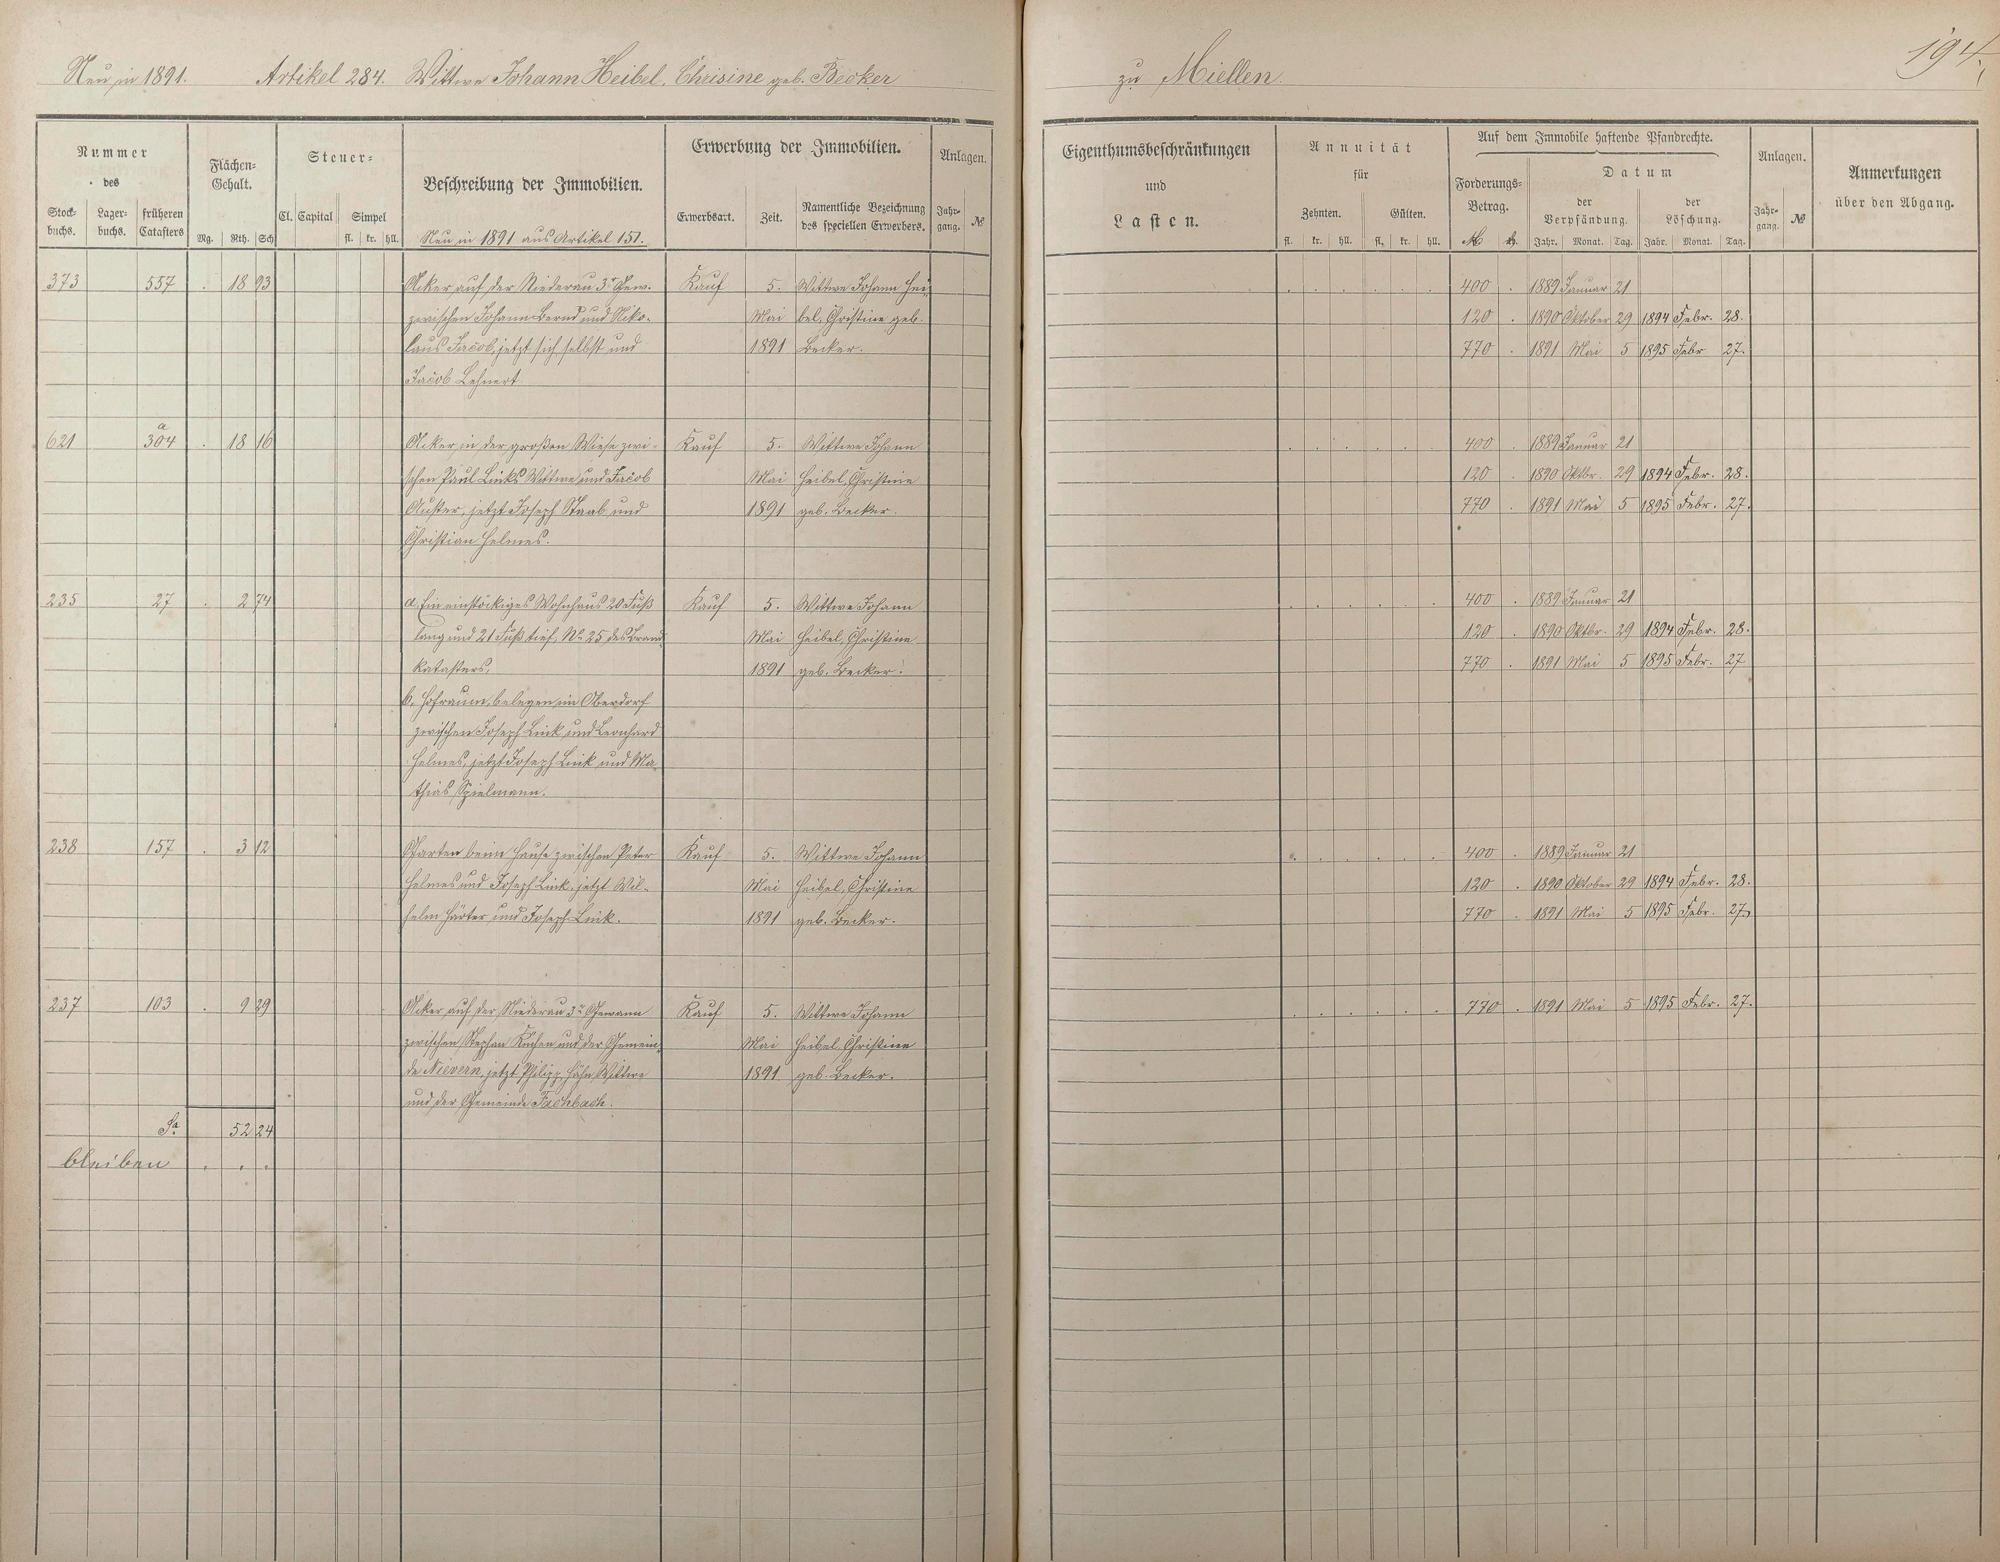 Neu in 1891. Artikel 284. Wittwe Johann Heibel, Chrisine geb. Becker
zu Miellen.
194.
Nummer
des
Stock-buchs. Lager-buchs. früheren Catasters
Flächen-Gehalt.
Mg. Rth. Sch
Steuer-
Cl. Capital Simpel
fl. kr. hll.
Beschreibung der Immobilien.
Neu in 1891 aus Artikel 151.
Erwerbung der Immobilien.
Erwerbsart. Zeit. Namentliche Bezeichnung des speciellen Erwerbers.
Anlagen.
Jahr-gang. №
Eigenthumsbeschränkungen
und
Lasten.
Annuität
für
Zehnten. Gülten.
fl. kr. hll. fl. kr. hll.
Auf dem Immobile haftende Pfandrechte.
Forderungs-Betrag.
Datum
der Verpfändung. der Löschung.
Jahr. Monat. Tag. Jahr. Monat. Tag.
Anlagen.
Jahr-gang. №
Anmerkungen
über den Abgang.
373 557 . 18 93 Acker auf der Niederau 3r Gew. Kauf 5. Wittwe Johann Hei- 400 . 1889 Januar 21
zwischen Johann Bernd und Niko- Mai bel, Christine geb. 120 . 1890 Oktober 29 1894 Febr. 28.
laus Jacob, jetzt sich selbst und 1891 Becker. 770 . 1891 Mai 5 1895 Febr 27.
Jacob Lehnert
621 304 a . 18 16 Acker in der großen Wiese zwi- Kauf 5. Wittwe Johann 400 . 1889 Januar 21
schen Paul Links Wittwe und Jacob Mai Heibel, Christine 120 . 1890 Oktbr. 29 1894 Febr. 28.
Auster, jetzt Joseph Staab und 1891 geb. Becker. 770 . 1891 Mai 5 1895 Febr. 27.
Christian Helmes.
235 27 . 2 74 a. Ein einstöckiges Wohnhaus 20 Fuß Kauf 5. Wittwe Johann 400 . 1889 Januar 21
lang und 21 Fuß tief, No 25 des Brand- Mai Heibel, Christine 120 . 1890 Oktbr. 29 1894 Febr. 28.
katasters. 1891 geb. Becker. 770 . 1891 Mai 5 1895 Febr. 27
b. Hofraum, belegen im Oberdorf
zwischen Joseph Link und Leonhard
Helmes, jetzt Joseph Link und Ma
thias Spielmann.
238 157 . 3 12 Garten beim Hause zwischen Peter Kauf 5. Wittwe Johann 400 . 1889 Januar 21
Helmes und Joseph Link, jetzt Wil- Mai Heibel, Christine 120 . 1890 Oktober 29 1894 Febr. 28.
helm Härter und Joseph Link. 1891 geb. Becker. 770 . 1891 Mai 5 1895 Febr. 27
237 103 . 9 29 Acker auf der Niederau 3r Gewann Kauf 5. Wittwe Johann 770 . 1891 Mai 5 1895 Febr. 27.
zwischen Stephan Kuchen und der Gemein- Mai Heibel, Christine
de Nievern, jetzt Philipp Hähn Wittwe 1891 geb. Becker.
und der Gemeinde Fachbach.
Sa 52 24
bleiben . . .